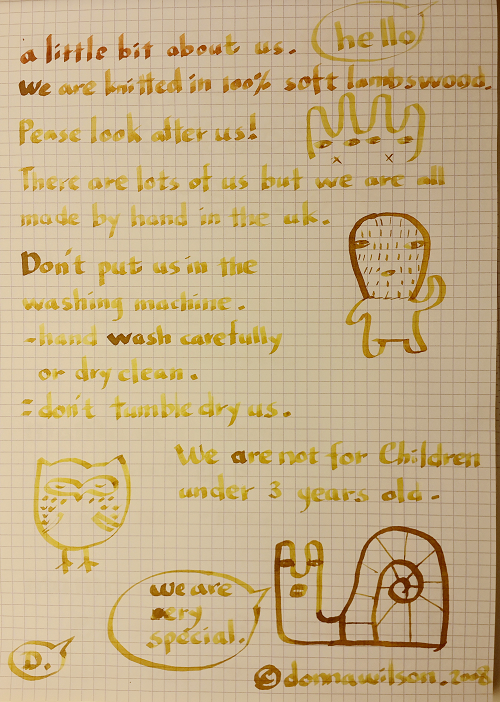 hello
a little bit about us.
We are knitted in 100% soft lambswood.
Pease look after us!
There are lots of us but we are all
made by hand in the uk.
Don't put us in the
washing machine.
-hand wash carefully
or dry clean.
=don't tumble dry us.
We are not for Children
under 3 years old.
we are
very
special.
D.
©donnawilson.2008